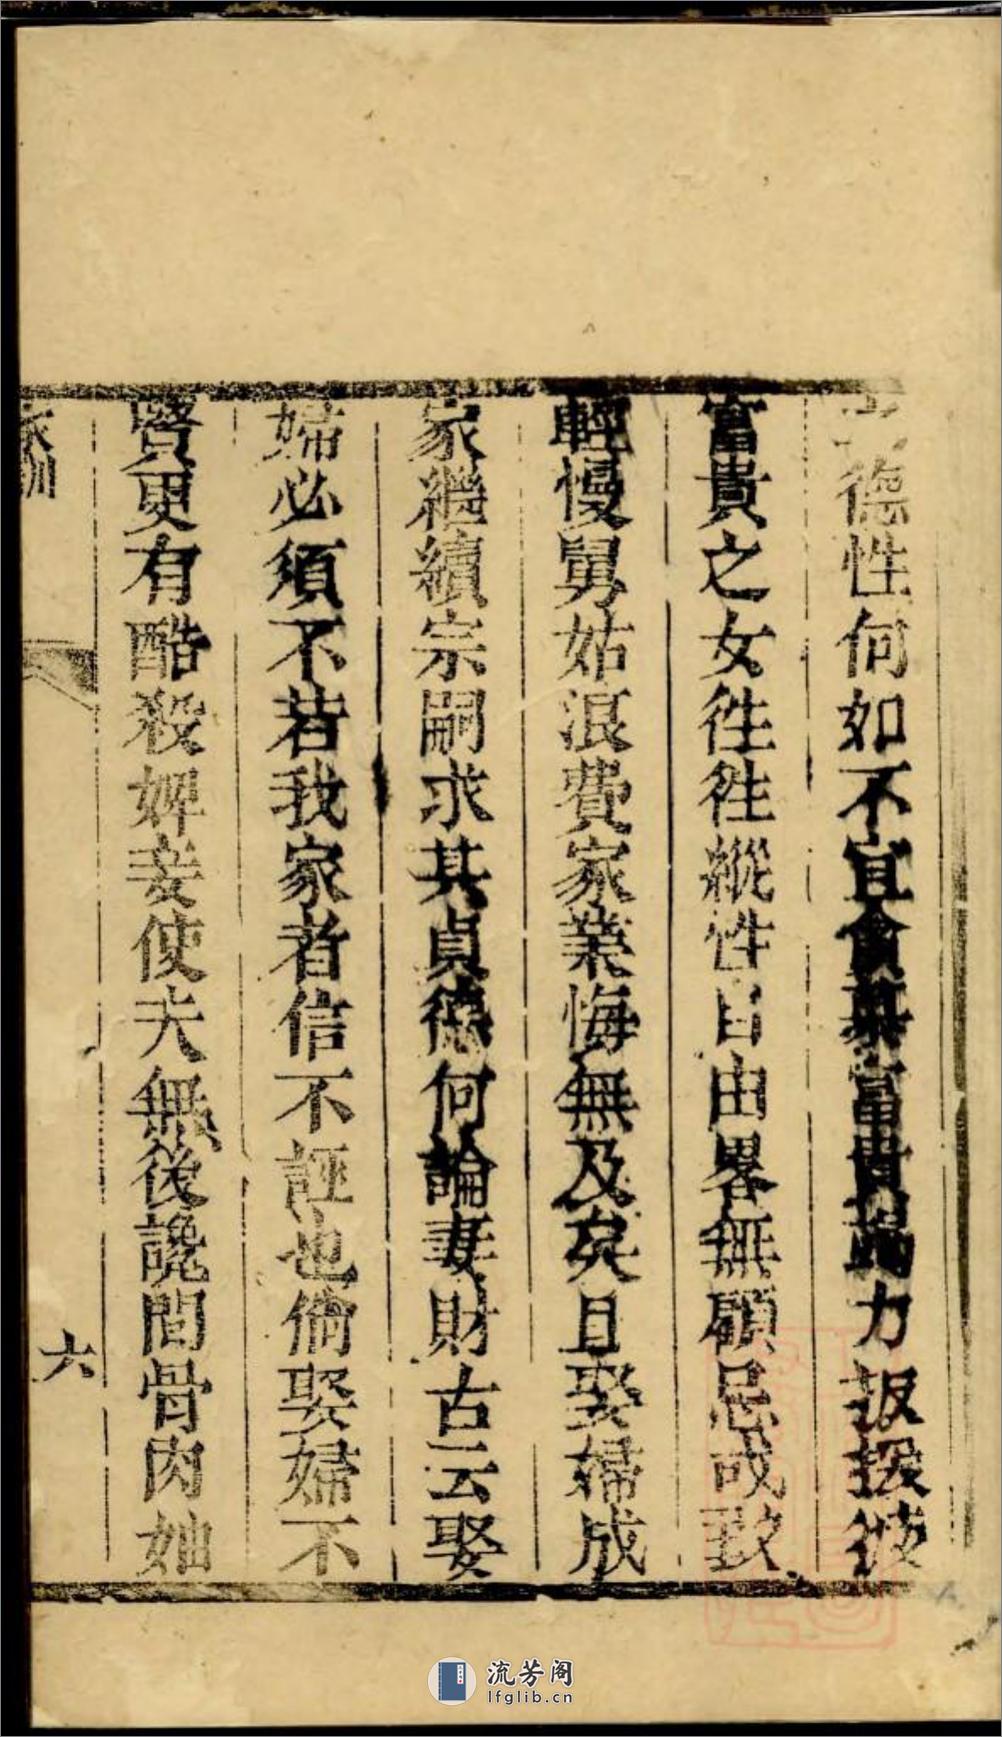 德性何如不宜貪慕富貴竭力扳援彼
富貴之女徃徃縱性自由畧無顧忌或致
輕慢舅姑浪費家業悔無及矣且娶婦成
家繼續宗嗣求其貞德何論妻財古云娶
婦必須不若我家者信不誣也倘娶婦不
賢更有酷殺婢妾使夫無後讒間骨肉妯
家訓
六
流芳阁
lfglib.cn